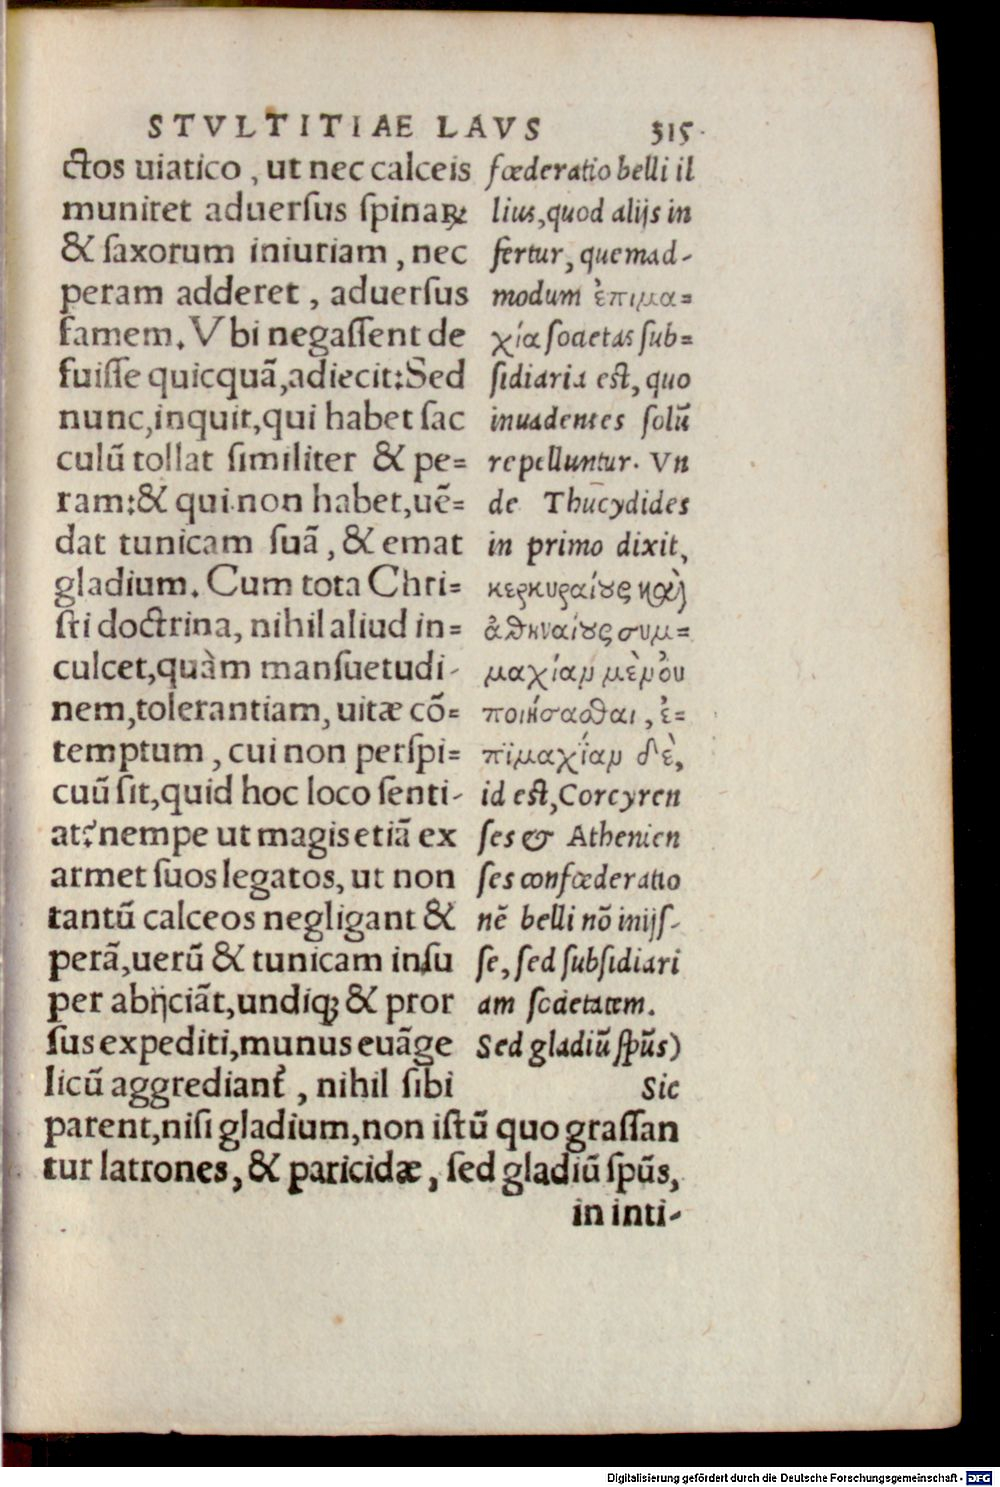 STVLTITIAE LAVS 315
ctos uiatico, ut nec calceis
muniret aduerſus ſpinaꝝ
& ſaxorum iniuriam, nec
peram adderet, aduerſus
famem. Vbi negaſſent de
fuiſſe quicquã, adiecit: Sed
nunc, inquit, qui habet ſac
culũ tollat ſimiliter & pe=
ram: & qui non habet, uẽ=
dat tunicam ſuã, & emat
gladium. Cum tota Chri=
ſti doctrina, nihil aliud in=
culcet, quàm manſuetudi-
nem, tolerantiam, uitæ cõ=
temptum, cui non perſpi=
cuũ ſit, quid hoc loco ſenti-
at? nempe ut magis etiã ex
armet ſuos legatos, ut non
tantũ calceos negligant &
perã, uerũ & tunicam inſu
per abijciãt, undiqꝫ & pror
ſus expediti, munus euãge
licũ aggrediant᷑, nihil ſibi
parent, niſi gladium, non iſtũ quo graſſan
tur latrones, & paricidæ, ſed gladiũ ſpũs,
in inti-
fœderatio belli il
lius, quod alijs in
fertur, quemad-
modum ἐπιμα=
χία ſocietas ſub=
ſidiaria eſt, quo
inuadentes ſolũ
repelluntur. Vn
de Thucydides
in primo dixit,
κερκυραίους καὶ
ἀθηναίους συμ=
μαχίαν μὲν οὐ
ποιήσασθαι, ἐ=
πϊμαχΐαν δὲ,
id eſt, Corcyren
ſes & Athenien
ſes confœderatio
nẽ belli nõ inijſ-
ſe, ſed ſubſidiari
am ſocietatem.
Sed gladiũ ſpũs)
Sic
Digitalisierung gefördert durch die Deutsche Forschungsgemeinschaft - DFG